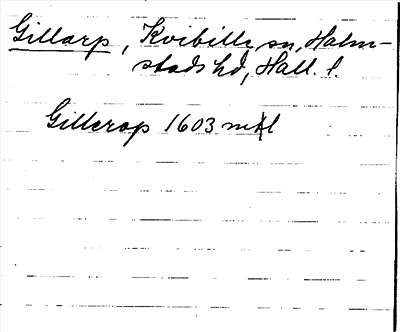 Gillarp, Kvibille sn, Halm-
stads hd, Hall. l.
Gillerop 1603 mtl